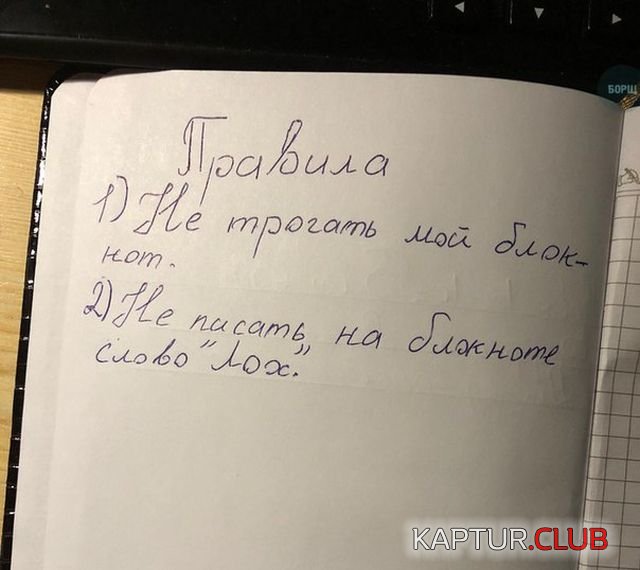 БОРЩ
Правила
1) Не трогать мой блок-
нот.
2) Не писать на блокноте
слово "Лох".
KAPTUR.CLUB